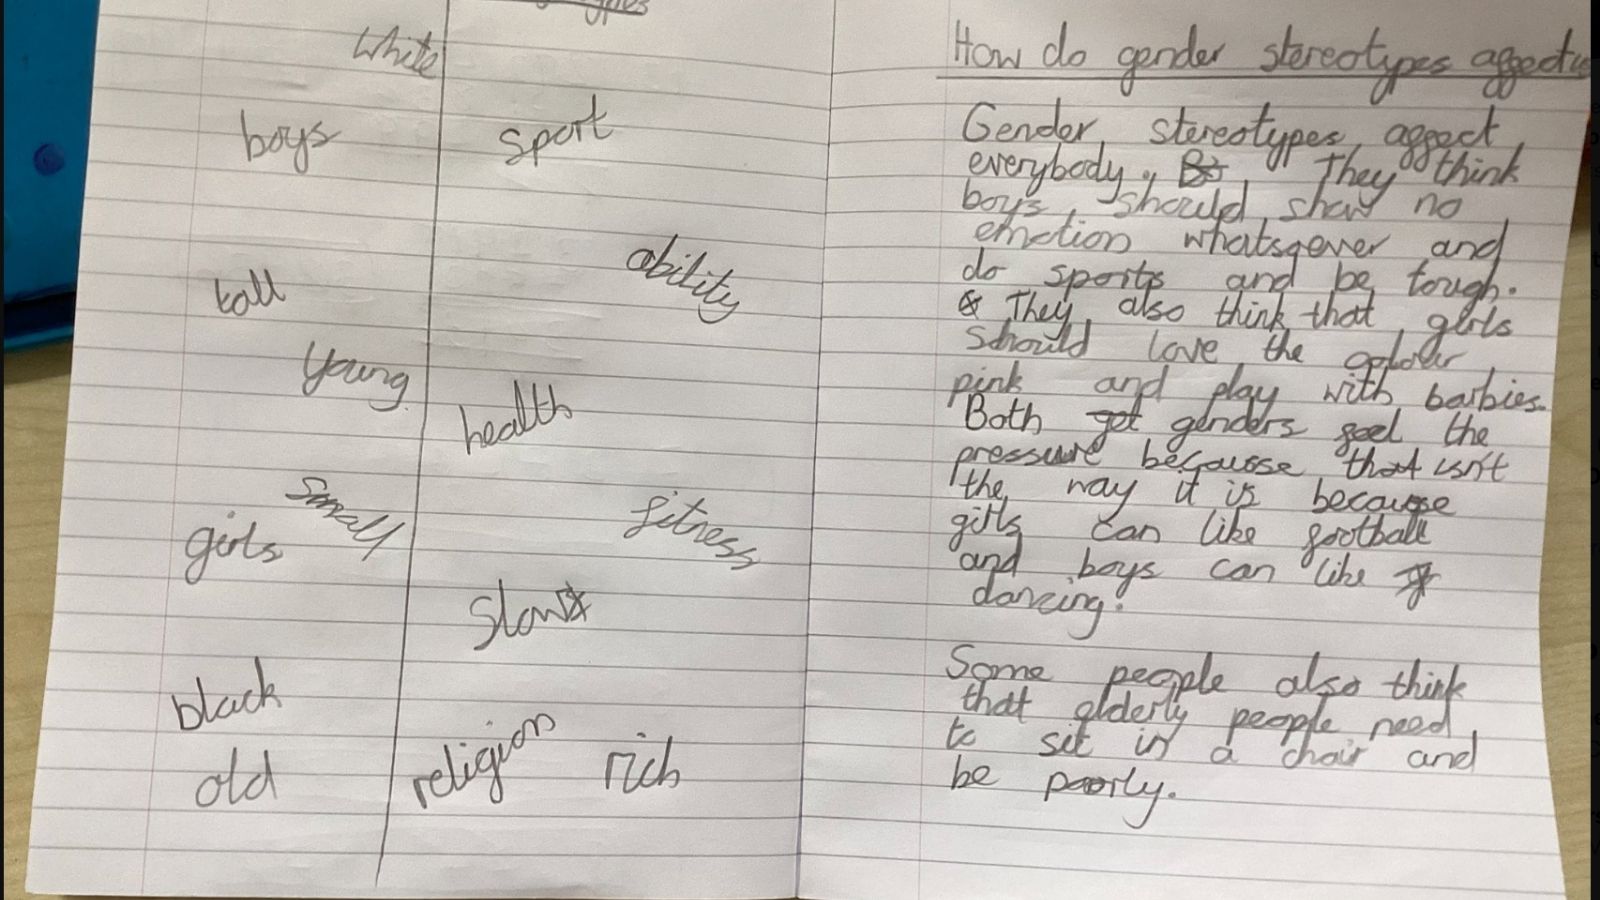 white
boys
sport
ability
tall
young
health
small
fitness
girls
slow
black
religion
rich
old
How do gender stereotypes affect us
Gender stereotypes affect
everybody. They think
boys should show no
emotion whatsoever and
do sports and be tough.
They also think that girls
should love the colour
pink and play with barbies.
Both genders feel the
pressure becausse that isn't
the way it is because
girls can like football
and boys can like
dancing.
Some people also think
that elderly people need
to sit in a chair and
be poorly.